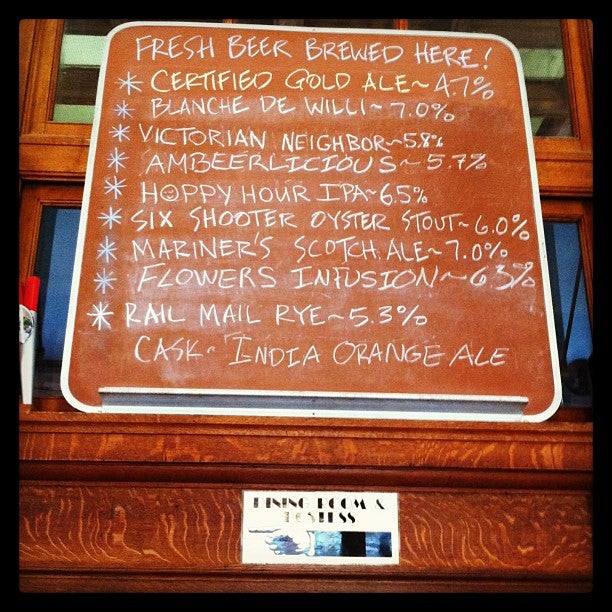 FRESH BEER BREWED HERE!
* CERTIFIED GOLD ALE~4.7%
* BLANCHE DE WILLI~7.0%
* VICTORIAN NEIGHBOR~5.8%
* AMBEERLICIOUS~5.7%
* HOPPY HOUR IPA~6.5%
* SIX SHOOTER OYSTER STOUT~6.0%
* MARINER'S SCOTCH ALE~7.0%
* FLOWERS INFUSION~6.3%
* RAIL MAIL RYE~5.3%
CASK- INDIA ORANGE ALE
DINING ROOM &
HOSTESS